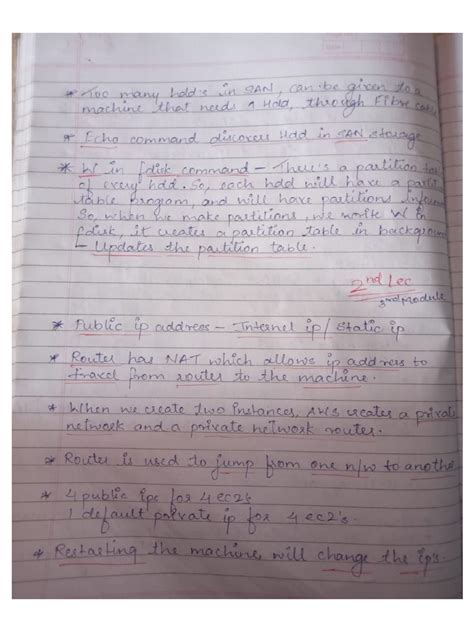 * Too many hdd's in SAN, can be given to a
machine that needs 1 Hdd, through Fibre
* Echo command discovers Hdd in SAN storage
* W in fdisk command - There's a partition
of every hdd. So, each hdd will have a
table program, and will have partitions
So, when we make partitions, we write W in
fdisk, it creates a partition table in
- Updates the partition table.
2nd Lec
3rd Module
* Public ip address - Internel ip / Static ip
* Router has NAT which allows ip address to
travel from router to the machine.
* When we create two instances, AWS creates a private
network and a private network router.
* Router is used to jump from one n/w to another
* 4 public ips for 4 ec2's
1 default private ip for 4 ec2's.
* Restarting the machine will change the ip's.